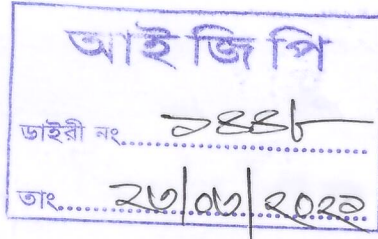 আইজিপি
ডাইরী নং ১৪৪৮
তাং ২৩/০৩/২০২১